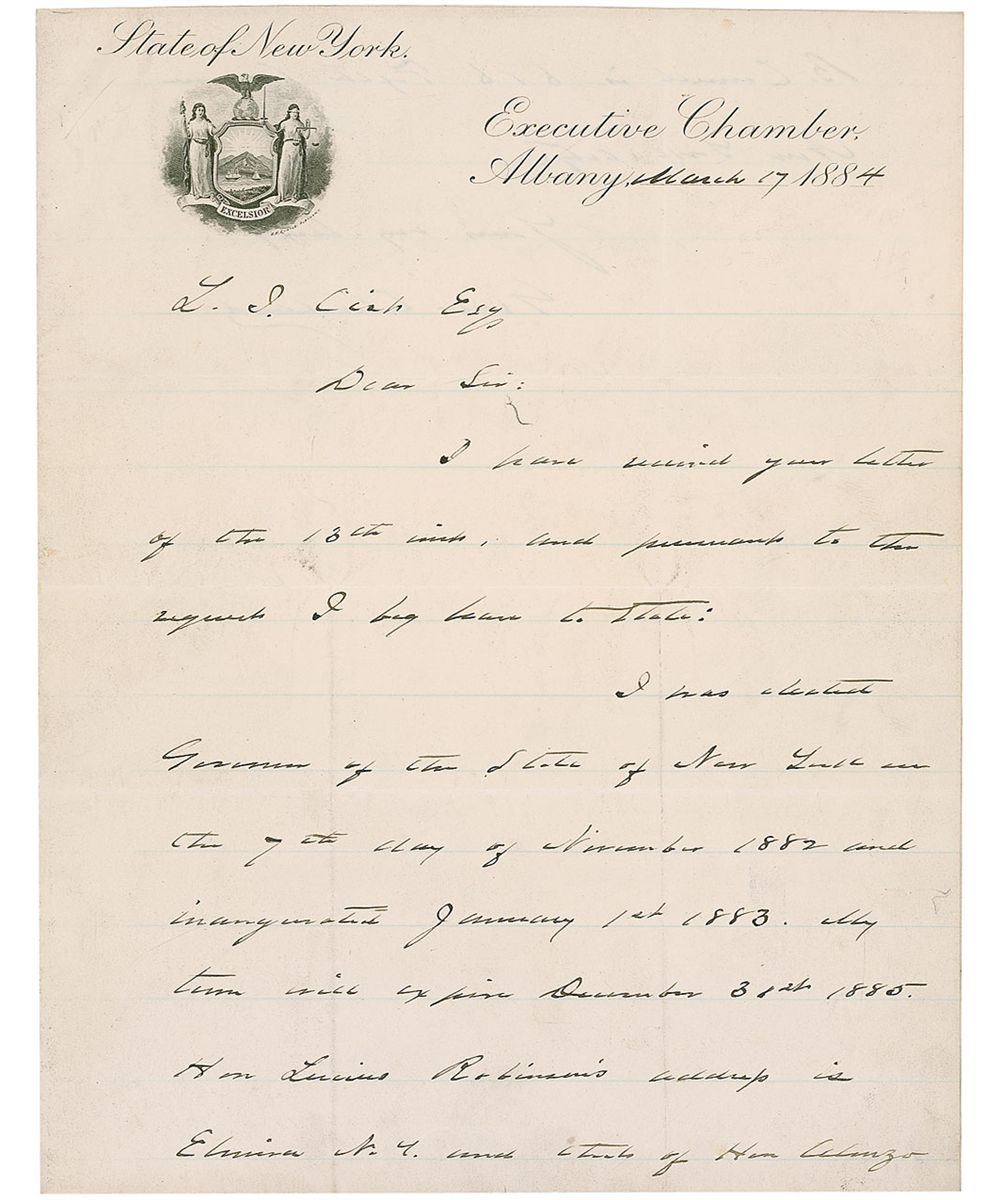 State of New York.
EXCELSIOR
Executive Chamber,
Albany, March 17 1884
L. J. Cist Esq
Dear Sir:
I have received your letter
of the 13th inst, and pursuant to the
request I beg leave to state:
I was elected
Governor of the State of New York on
the 7th day of November 1882 and
inaugurated January 1st 1883. My
term will expire December 31st 1885.
Hon Lucius Robinson's address is
Elmira N.Y. and that of Hon Alonzo